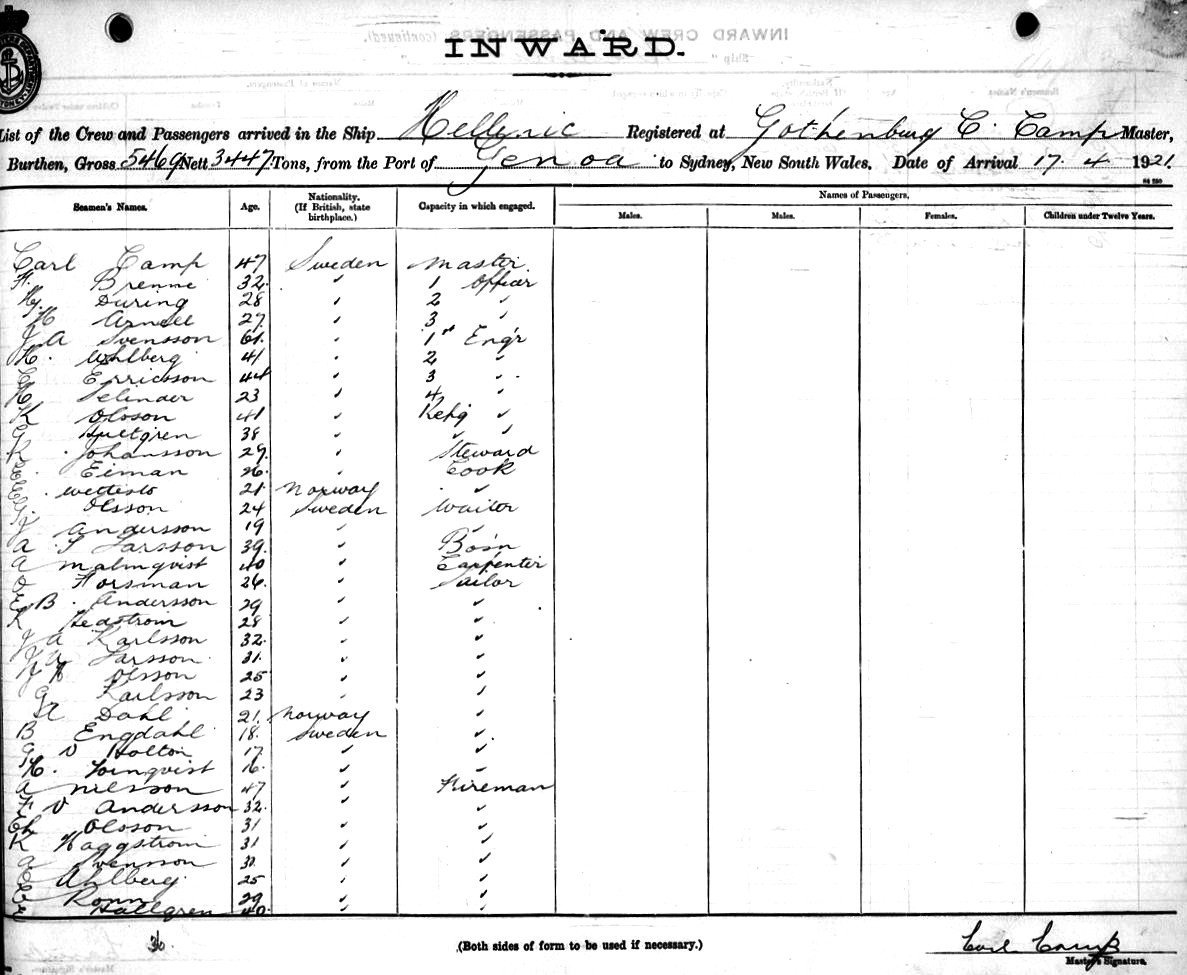 INWARD.
List of the Crew and Passengers arrived in the Ship Hellenic Registered at Gothenburg C. Camp Master,
Burthen, Gross 5469 Nett 3447 Tons, from the Port of Genoa to Sydney, New South Wales. Date of Arrival 17. 4 1921.
Seamen's Names. Age. Nationality. (If British, state birthplace.) Capacity in which engaged. Names of Passengers.
Males. Males. Females. Children under Twelve Years.
Carl Camp 47 Sweden Master
Brenne 32 " 1 Officer
Hj. During 28 " 2 "
H Arnell 27 " 3 "
J A Svensson 61 " 1st Engr
H. Wahlberg 41 " 2 "
Erricsson 44 " 3 "
H Selinder 23 " 4 "
K Oloson 41 " Refrg "
G Hultgren 38 " " "
K Johansson 29 " Steward
Eiman 26 " Cook
21 Norway "
Olsson 24 Sweden Waiter
J Andersson 19 " "
A Larsson 39 " Bo'sn
A Malmqvist 40 " Carpenter
O Forsman 26 " Sailor
E B. Andersson 29 " "
K Hedstrom 28 " "
J A Karlsson 32 " "
J A Larsson 31 " "
H Olsson 25 " "
G Karlsson 23 " "
Dahl 21 Norway "
B Engdahl 18 Sweden "
G V Holton 17 " "
H. 16 " "
A Nilsson 47 " Fireman
F V Andersson 32 " "
Oloson 31 " "
K Haggstrom 31 " "
A Svensson " "
Ahlberg 25 " "
Ronn 29 " "
Hallgren 40 " "
36. (Both sides of form to be used if necessary.) Carl Camp
Master's Signature.